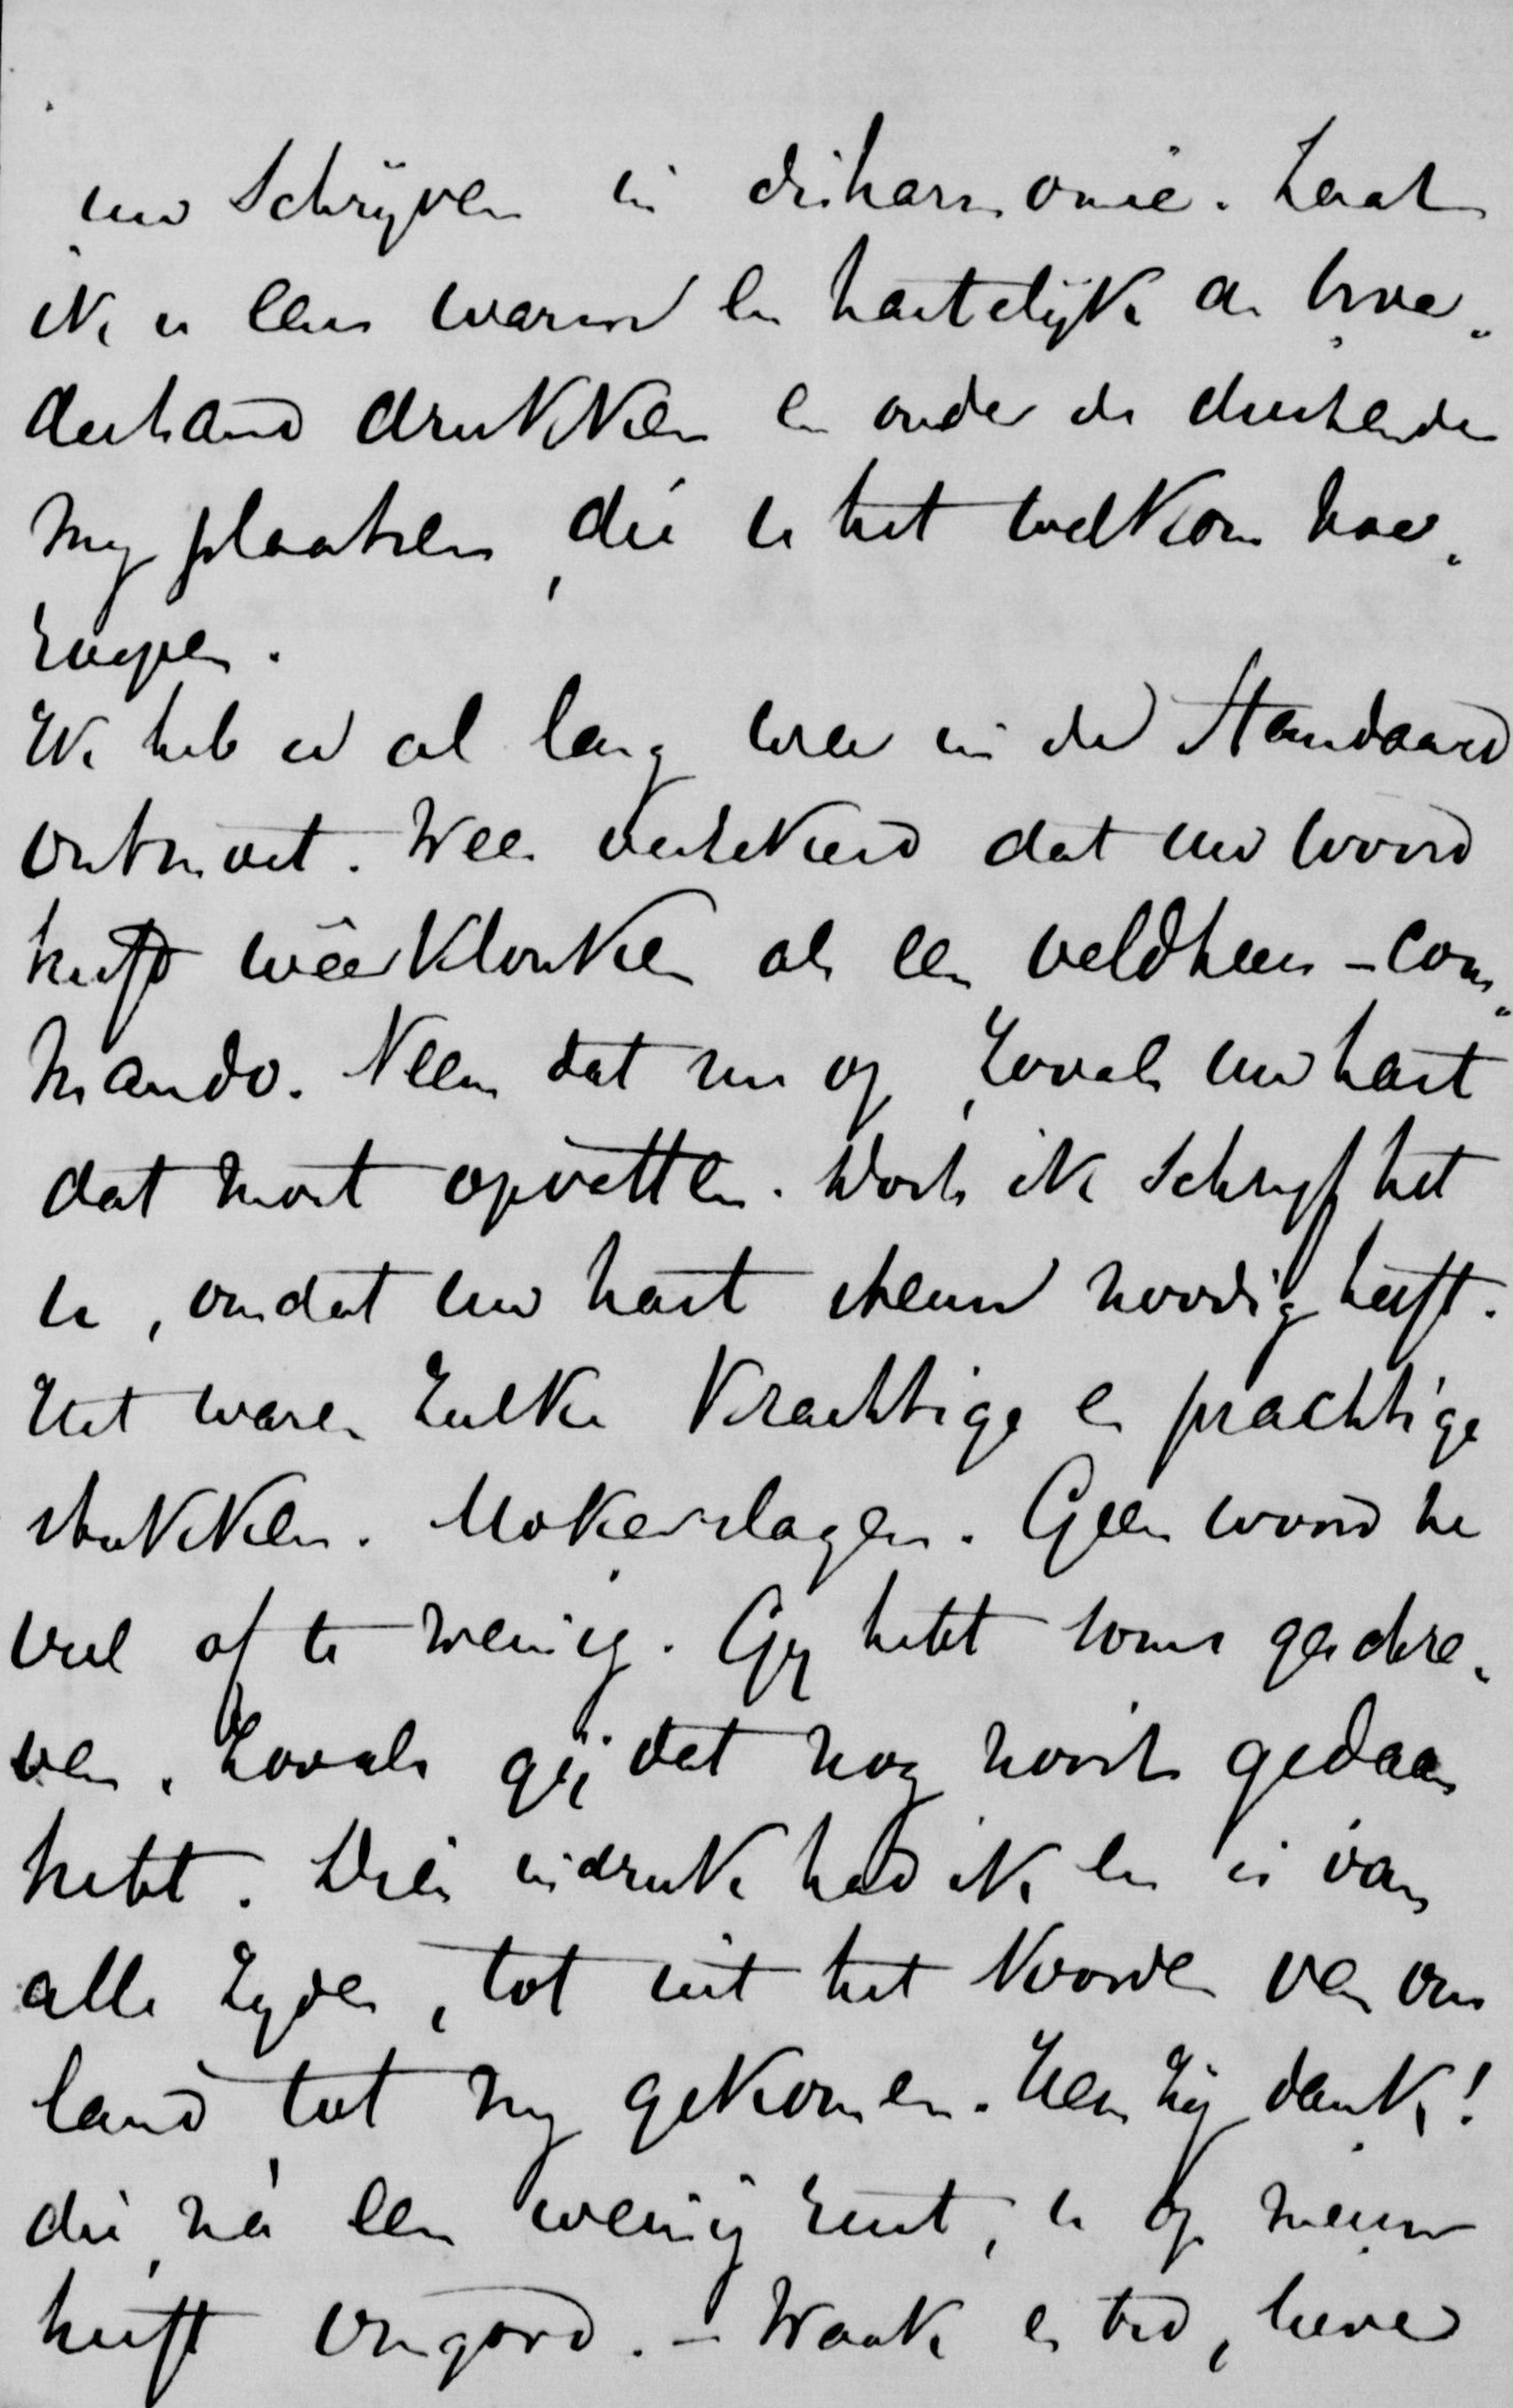 uw schrijven in disharmonie. Laat
ik u eens warm en hartelijk de broe„
derhand drukken en onder de duizenden
mij plaatsen, die u het welkom toe„
roepen.
Ik heb er al lang weer in de Standaard
ontmoet. Wees verzekerd dat uw woord
heeft wêerklonken als een veldheers-com„
mando. Neem dat nu op, zooals uw hart
dat moet opvatten. Doch ik schrijf het
u, omdat uw hart steun noodig heeft.
Het waren zulke krachtige en prachtige
stukken. Mokerslagen. Geen woord te
veel of te weinig. Gij hebt soms geschre„
ven, zooals gij dat nog nooit gedaan
hebt. Dien indruk had ik en is van
alle zijden, tot uit het Noorden van ons
land tot mij gekomen. Hem zij dank!
die, ná een weinig rust, u op nieuw
heeft omgord. – Waak en bid, lieve